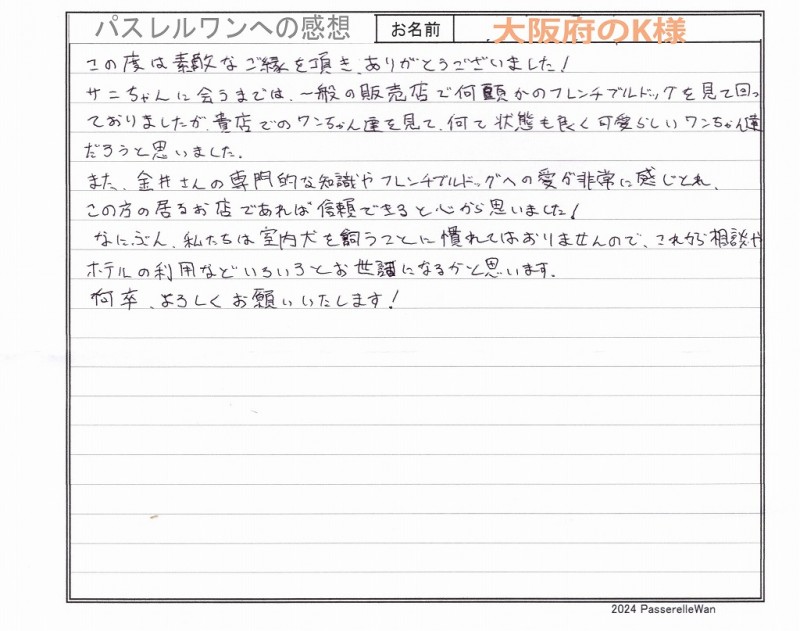 パスレルワンへの感想 お名前 大阪府のK様
この度は素敵なご縁を頂き、ありがとうございました！
サニちゃんに会うまでは、一般の販売店で何頭かのフレンチブルドッグを見て回っ
ておりましたが、貴店でのワンちゃん達を見て、何て状態も良く可愛らしいワンちゃん達
だろうと思いました。
また、金井さんの専門的な知識やフレンチブルドッグへの愛が非常に感じとれ、
この方の居るお店であれば信頼できると心から思いました！
なにぶん、私たちは室内犬を飼うことに慣れてはおりませんので、これから相談や
ホテルの利用などいろいろとお世話になるかと思います。
何卒、よろしくお願いいたします！
2024 PasserelleWan